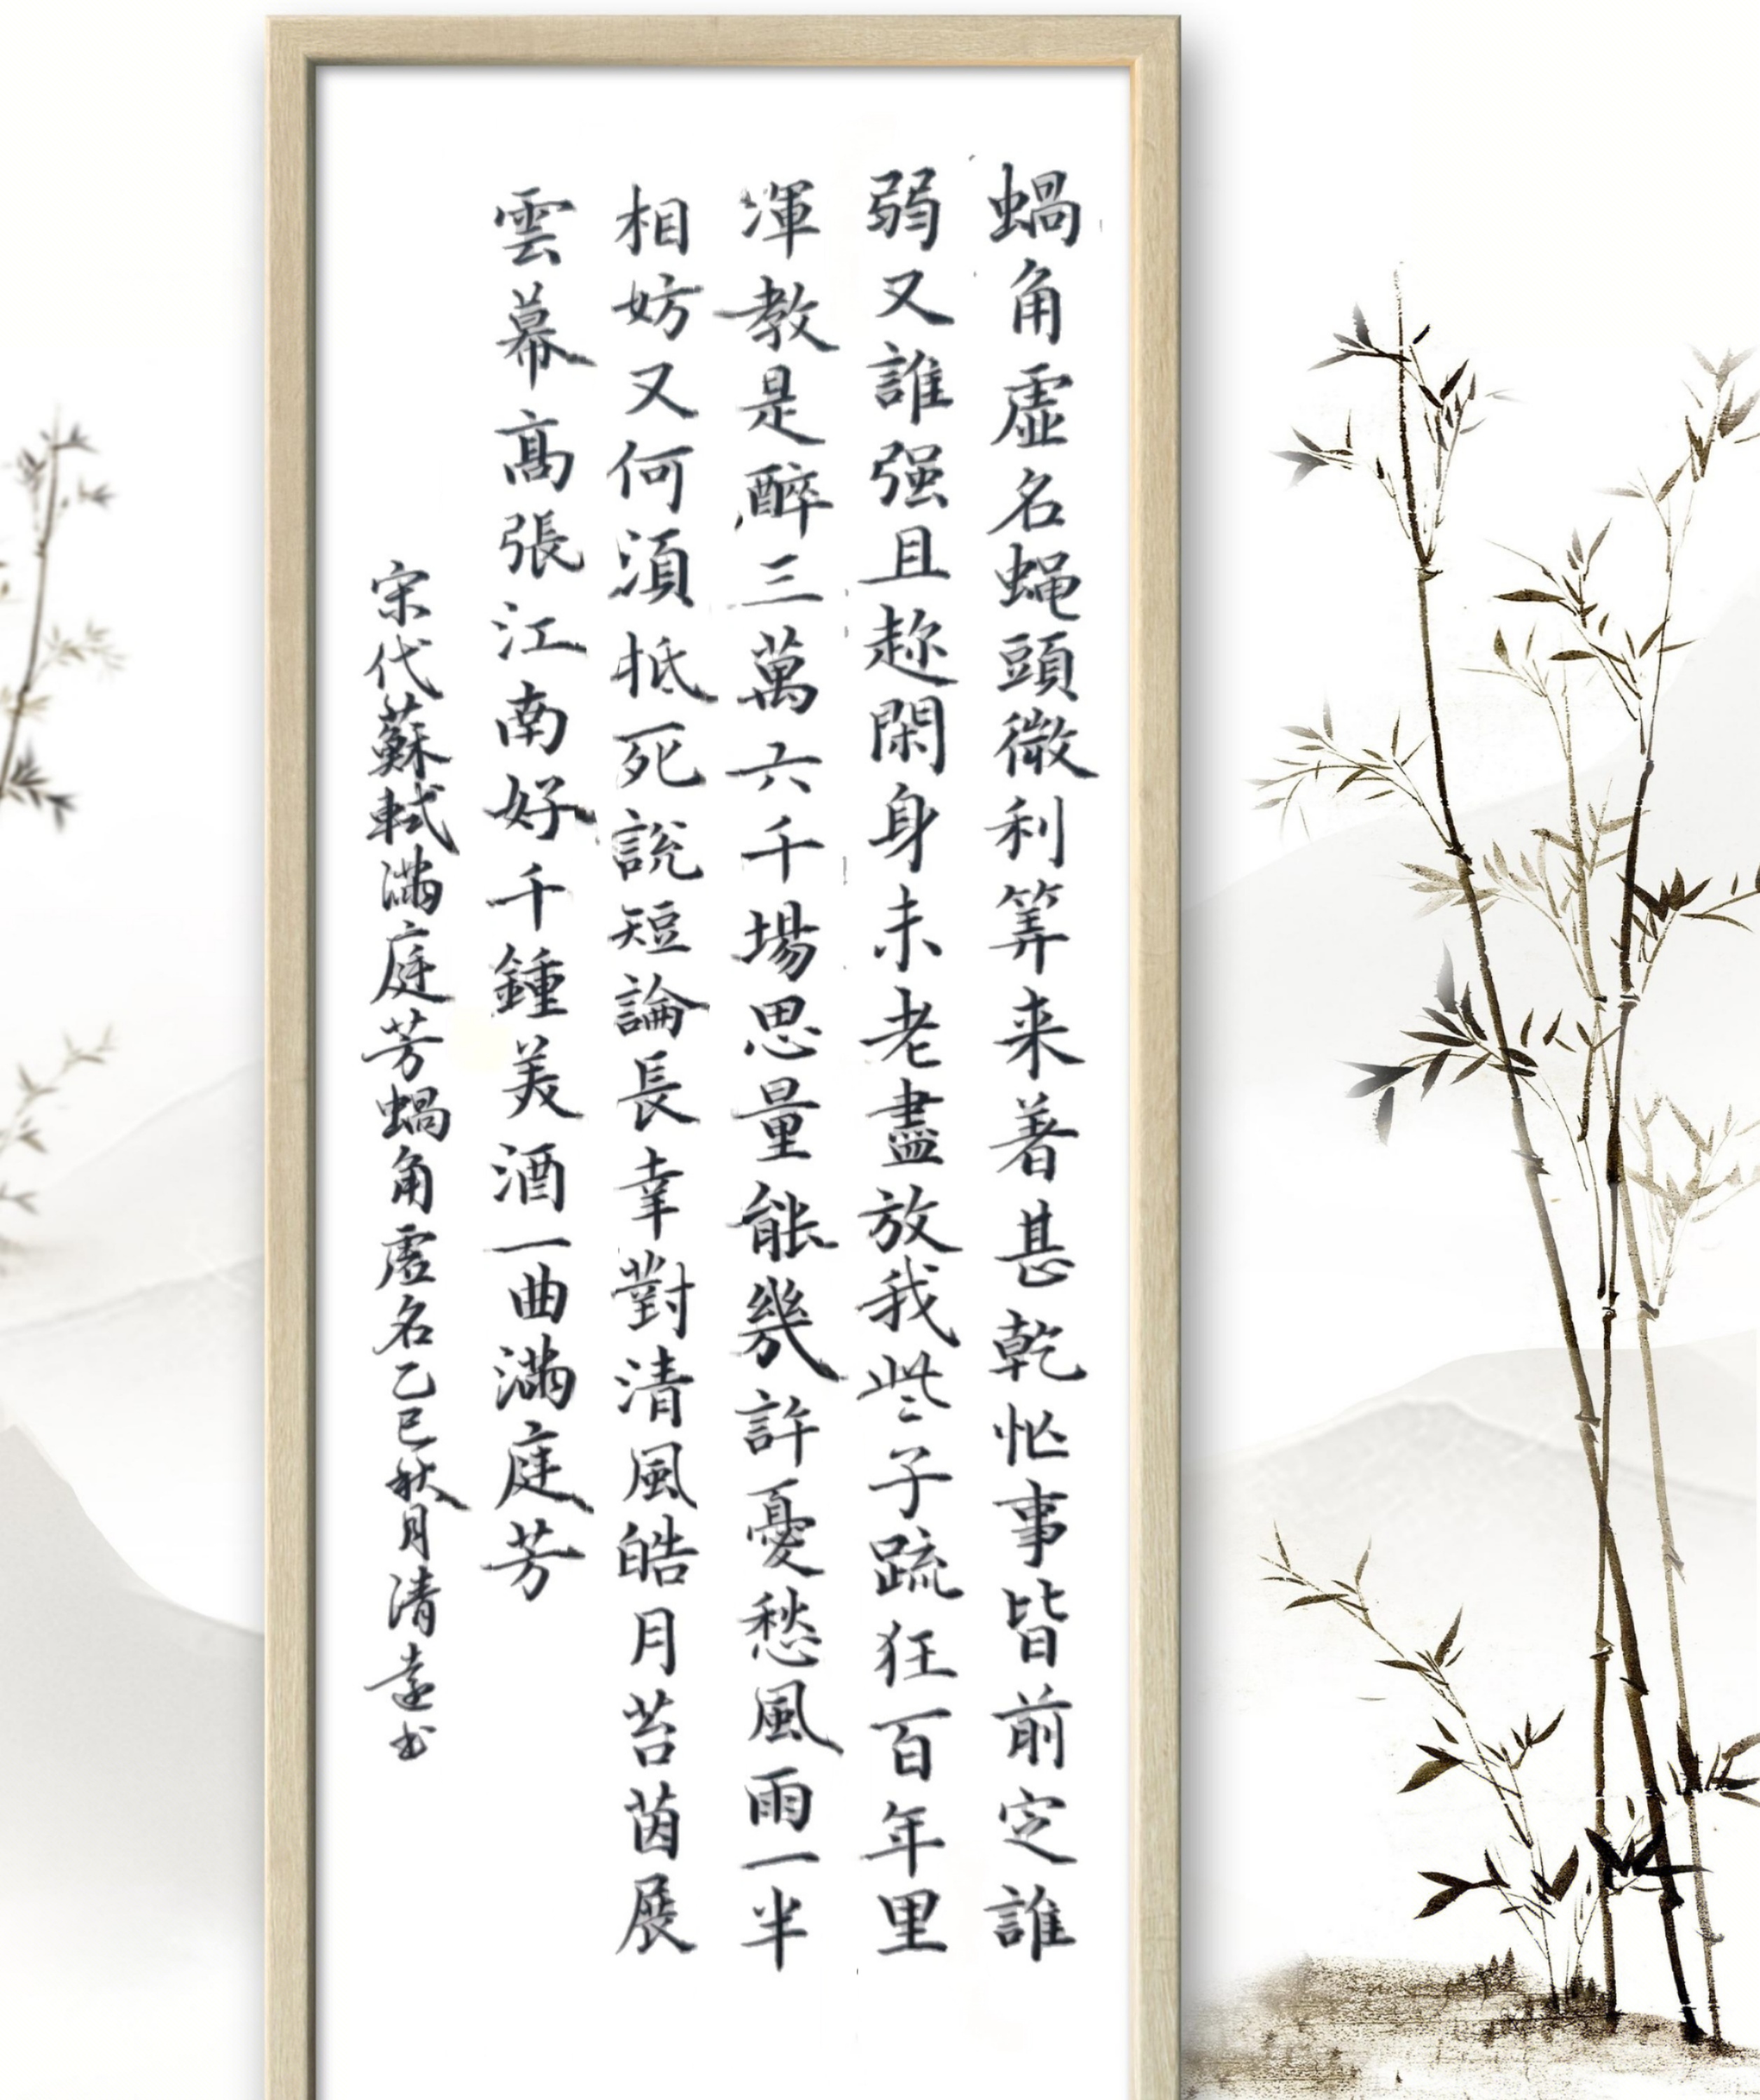 蝸角虛名蝇頭微利筭来着甚乾忙事皆前定誰
弱又誰强且趂閑身未老盡放我些子疏狂百年里
渾教是醉三萬六千場思量能幾許憂愁風雨一半
相妨又何須抵死說短論長幸對清風皓月苔茵展
雲幕高張江南好千鍾美酒一曲滿庭芳
宋代蘇軾滿庭芳蝸角虛名乙巳秋月清遠书